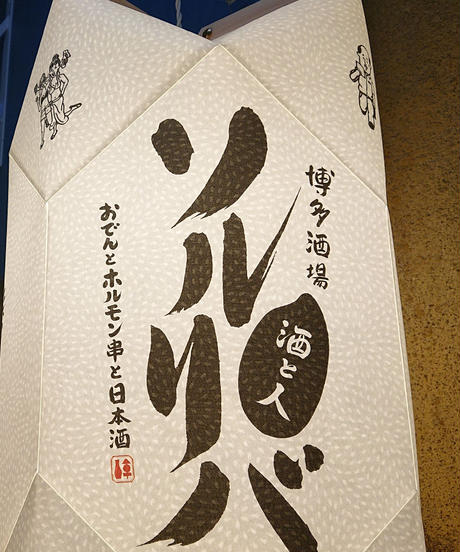 博多酒場
酒と人
ソルリバ
おでんとホルモン串と日本酒